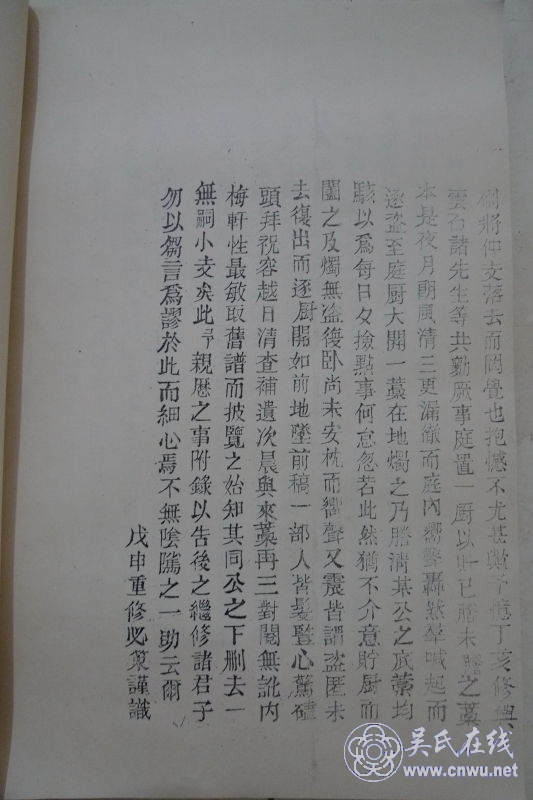 刪將仲支落去而罔覺也抱憾不尤甚歟予憶丁亥修與
雲石諸先生等共勷厥事庭置一厨以貯已謄未謄之藁
本是夜月朗風清三更漏徹而庭內嚮聲轟然羣喊起而
逐盜至庭厨大開一藁在地燭之乃謄清某公之底藁均
駭以爲每日夕撿點事何怠忽若此然猶不介意貯厨而
闔之及燭無盜復卧尚未安枕而嚮聲又震皆謂盜匿未
去復出而逐厨開如前地墜前稿一部人皆髮豎心驚磕
頭拜祝容越日清查補遺次晨與來藁再三對閱無訛內
梅軒性最敏取舊譜而披覽之始知其同公之下刪去一
無嗣小支矣此予親歷之事附錄以告後之繼修諸君子
勿以芻言爲謬於此而細心焉不無陰騭之一助云爾
戊申重修必策謹識
吴氏在线
www.cnwu.net